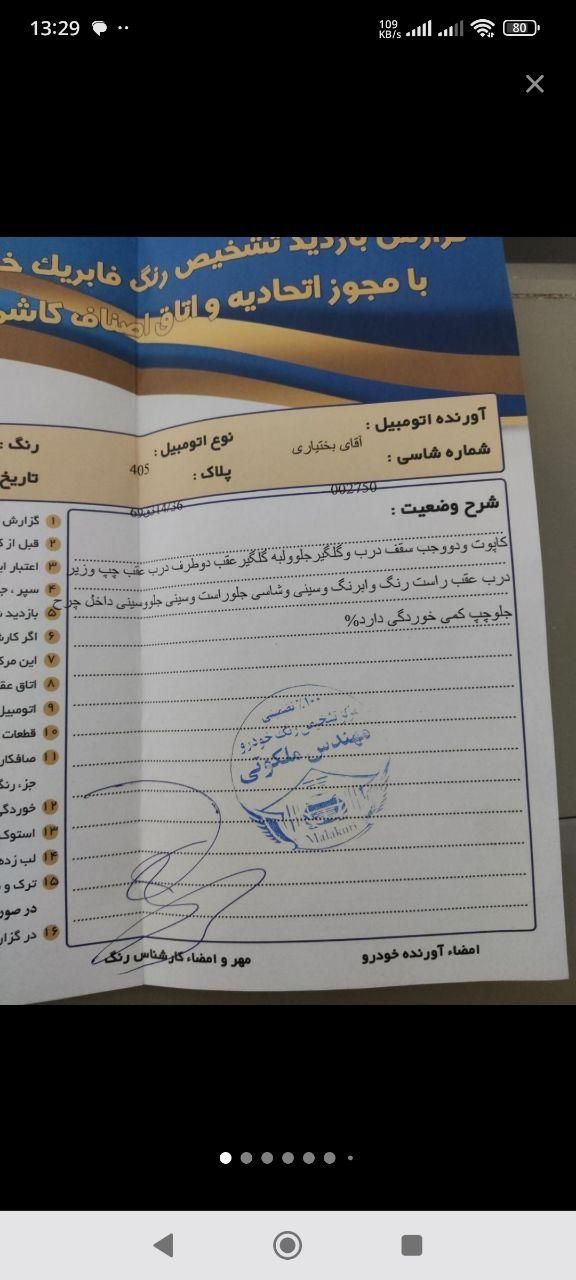 13:29
109 KB/s
80
گزارش بازدید تشخیص رنگ فابریک
با مجوز اتحادیه و اتاق اصناف
آورنده اتومبیل : آقای بختیاری
نوع اتومبیل : 405
رنگ :
شماره شاسی : 002750
پلاک :
تاریخ
شرح وضعیت :
کاپوت ودووجب سقف درب وگلگیرجلوولبه گلگیرعقب دوطرف درب عقب چپ وزیر
درب عقب راست رنگ وابرنگ وسینی وشاسی جلوراست وسینی جلووسینی داخل چرخ
جلوچپ کمی خوردگی دارد%
۱ گزارش
۲ قبل از
۳ اعتبار
۴ سپر ،
۵ بازدید
۶ اگر
۷ این
۸ اتاق
۹ اتومبیل
۱۰ قطعات
۱۱ صافکار
جزء
۱۲ خوردگی
۱۳ استوک
۱۴ لب
۱۵ ترک و
در
۱۶ در
۱۰۰٪ تضمینی
مرکز تشخیص رنگ خودرو
مهندس ملکوتی
Malakuti
امضاء آورنده خودرو
مهر و امضاء کارشناس رنگ